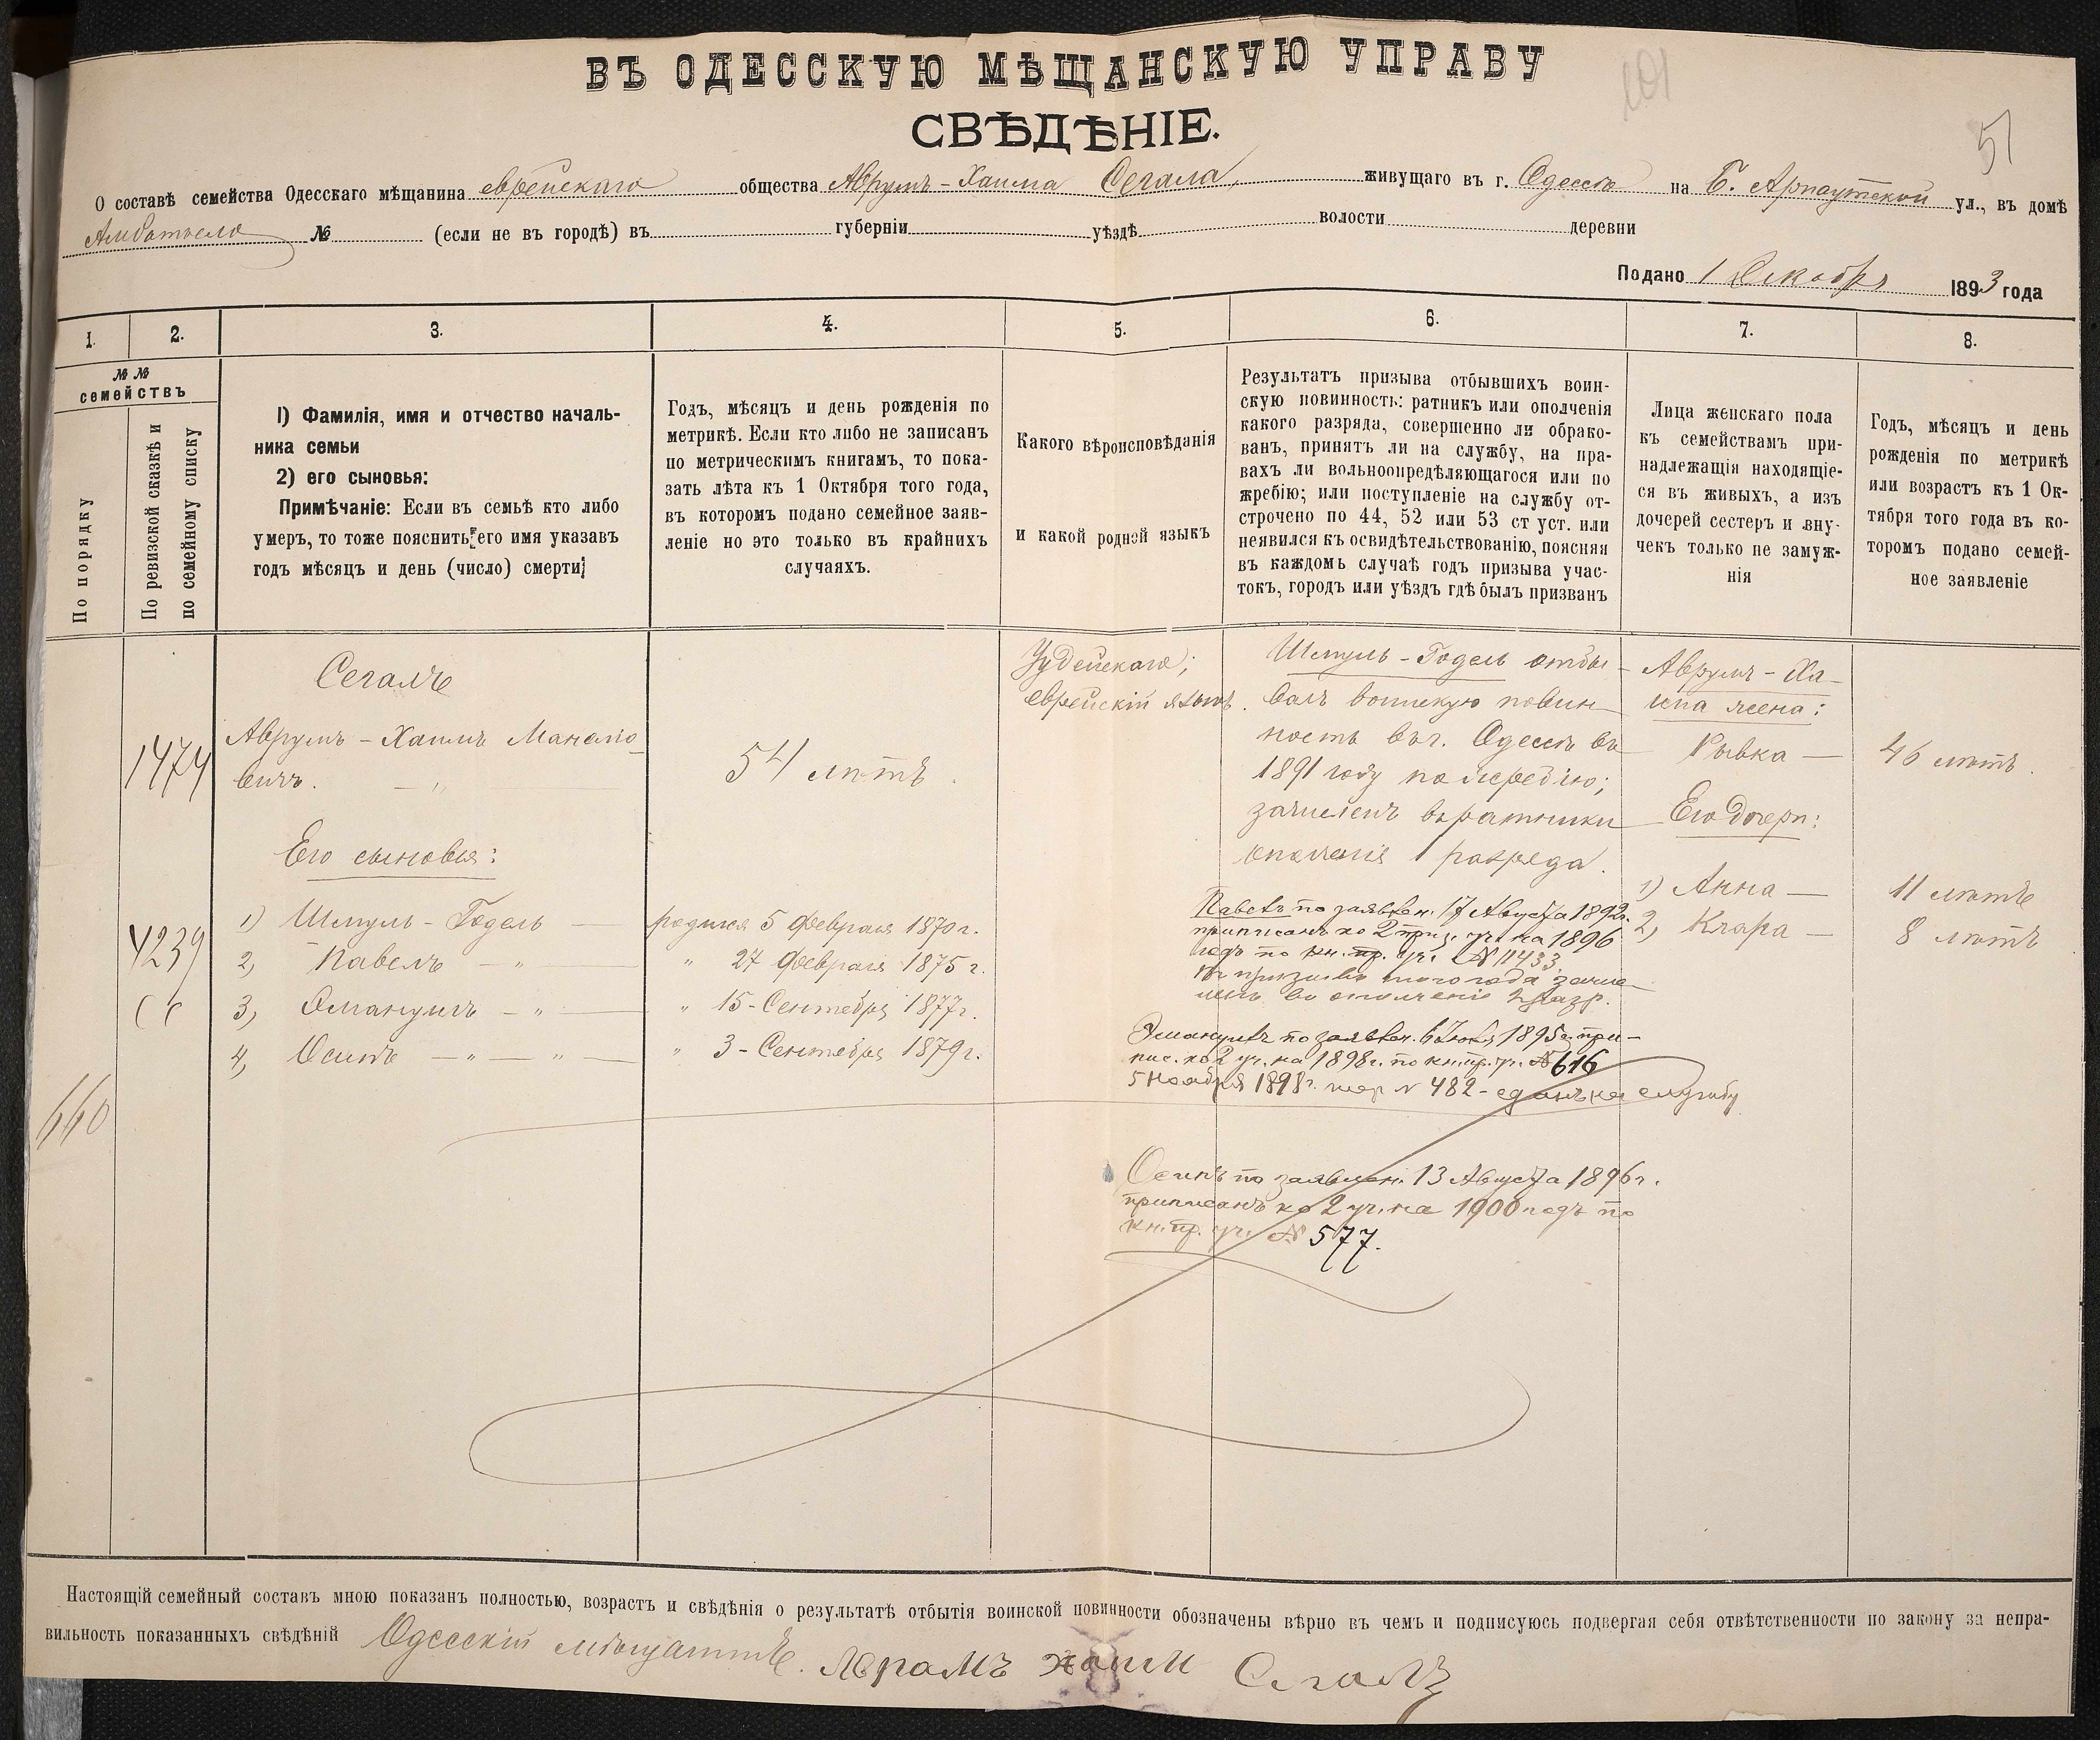 101
51
ВЪ ОДЕССКУЮ МѢЩАНСКУЮ УПРАВУ
СВѢДѢНІЕ.
О составѣ семейства Одесскаго мѣщанина еврейскаго общества Аврумъ-Хаима Сегала, живущаго въ г. Одессѣ на Б. Арнаутской ул., въ домѣ
№ (если не въ городѣ) въ губерніи уѣздѣ волости деревни
Подано 1 Декабря 1893 года
1. 2. 3. 4. 5. 6. 7. 8.
№ №
семействъ
По порядку
По ревизской сказкѣ и
по семейному списку
1) Фамилія, имя и отчество началь-
ника семьи
2) его сыновья:
Примѣчаніе: Если въ семьѣ кто либо
умеръ, то тоже пояснить его имя указавъ
годъ мѣсяцъ и день (число) смерти;
Годъ, мѣсяцъ и день рожденія по
метрикѣ. Если кто либо не записанъ
по метрическимъ книгамъ, то пока-
зать лѣта къ 1 Октября того года,
въ которомъ подано семейное заяв-
леніе но это только въ крайнихъ
случаяхъ.
Какого вѣроисповѣданія
и какой родной языкъ
Результатъ призыва отбывшихъ воин-
скую повинность: ратникъ или ополченія
какого разряда, совершенно ли обрако-
ванъ, принятъ ли на службу, на пра-
вахъ ли вольноопредѣляющагося или по
жребію; или поступленіе на службу от-
строчено по 44, 52 или 53 ст уст. или
неявился къ освидѣтельствованію, поясняя
въ каждомъ случаѣ годъ призыва учас-
токъ, городъ или уѣздъ гдѣ былъ призванъ
Лица женскаго пола
къ семействамъ при-
надлежащія находящіе-
ся въ живыхъ, а изъ
дочерей сестеръ и вну-
чекъ только не замуж-
нія
Годъ, мѣсяцъ и день
рожденія по метрикѣ
или возрастъ къ 1 Ок-
тября того года въ ко-
торомъ подано семей-
ное заявленіе
1474
4239
660
Сегалъ
Аврумъ-Хаимъ Манело-
вичъ. — "
Его сыновья:
1) Шмуль-Годель —
2) Павелъ — " —
3) Эмануилъ — " —
4) Осипъ — " — " —
54 лѣтъ.
родился 5 Февраля 1870 г.
" 27 Февраля 1875 г.
" 15-Сентября 1877 г.
" 3-Сентября 1879 г.
Іудейскаго;
еврейскій языкъ.
Шмуль-Годель отбы-
валъ воинскую повин-
ность въ г. Одессѣ въ
1891 году по жребію;
зачисленъ въ ратники
ополченія 1 разряда.
Павелъ по заявлен. 17 Августа 1892 г.
приписанъ ко 2 приз. уч. на 1896
годъ по кн. пр. уч. № 11433
въ призывѣ того года зачис-
ленъ въ ополченіе 2 разр.
Эмануилъ по заявлен. 6 Іюля 1895 г. при-
пис. ко 2 уч. на 1898 г. по кн. пр. уч. № 616
5 Ноября 1898 г. жер № 482 - сданъ на службу
Осипъ по заявлен. 13 Августа 1896 г.
приписанъ ко 2 уч. на 1900 годъ по
кн. пр. уч. № 577.
Аврумъ-Ха-
има жена:
Рывка —
Его дочери:
1) Анна —
2) Клара —
46 лѣтъ.
11 лѣтъ
8 лѣтъ
Настоящій семейный составъ мною показанъ полностью, возрастъ и свѣдѣнія о результатѣ отбытія воинской повинности обозначены вѣрно въ чемъ и подписуюсь подвергая себя отвѣтственности по закону за непра-
вильность показанныхъ свѣдѣній Одесскій мѣщанинъ. Аврамъ Хаим Сегалъ